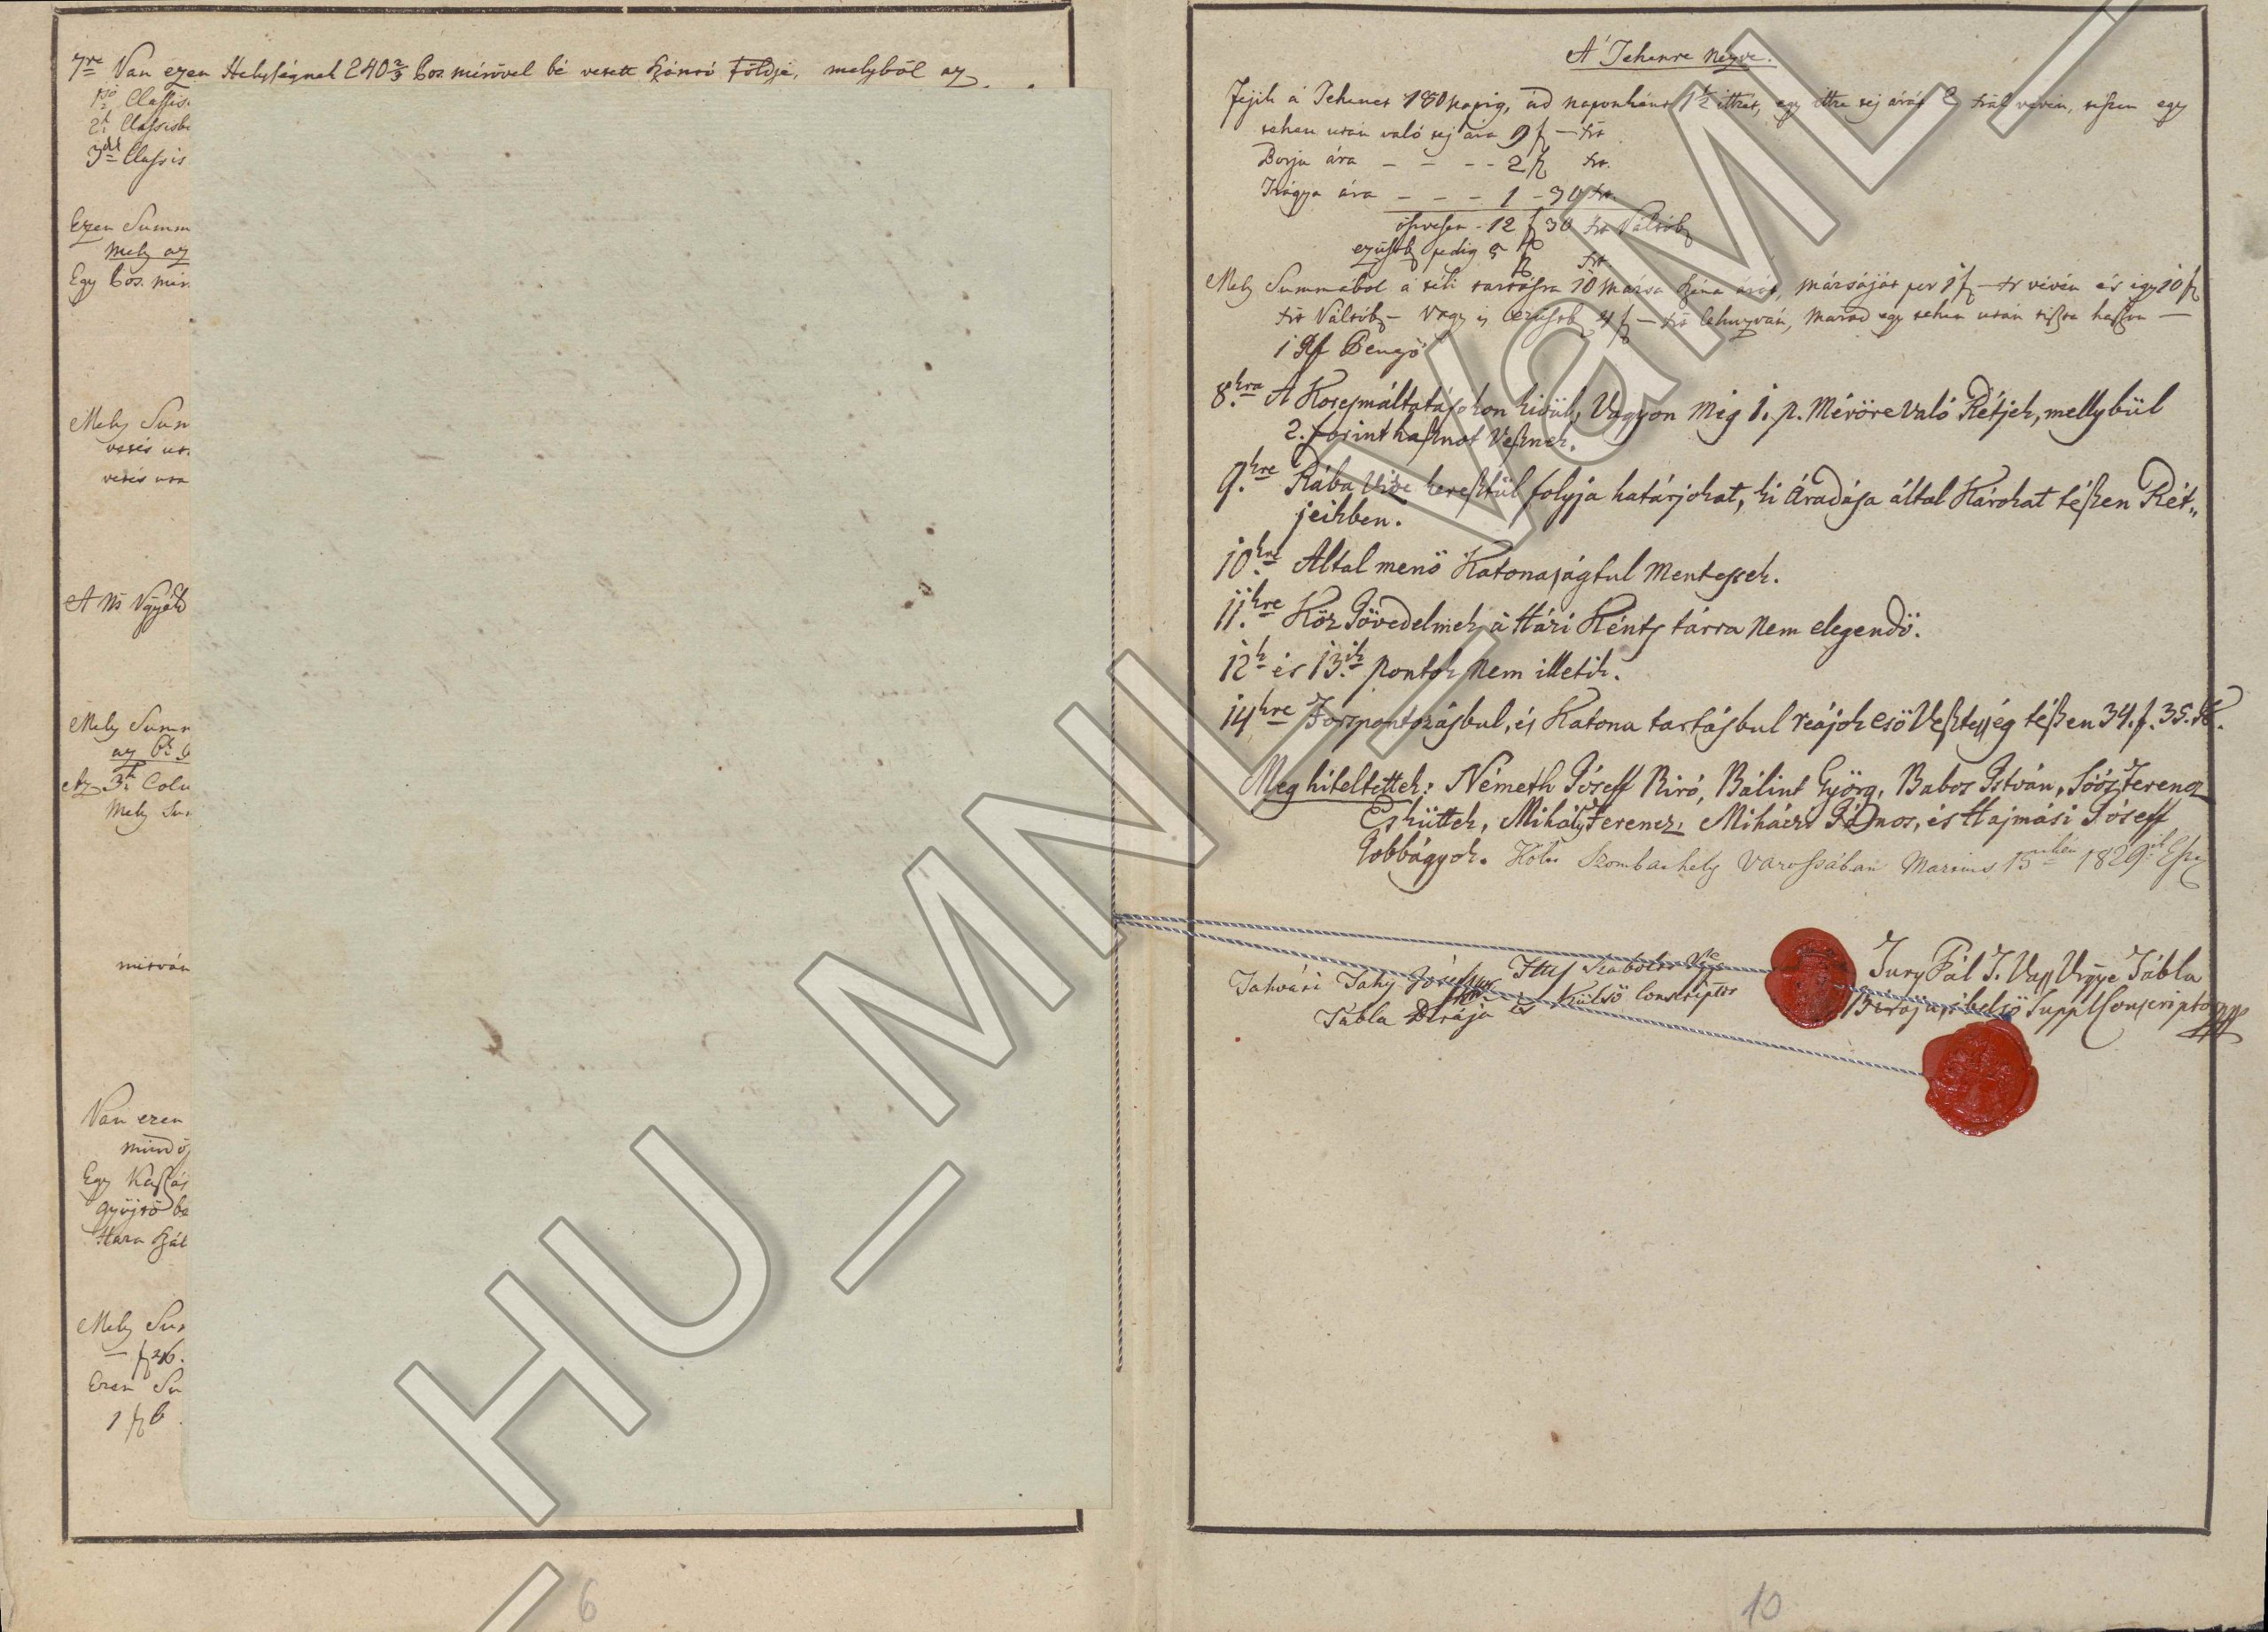 7re Van ezen Helységnek 240 2/3 Pos. mérővel bé vetett szántó Földje, melyböl az
1ső Classis
2k Classisb
3dik Classis
Ezen Summ
mely az
Egy Pos. mér
Mely Sum
vetés ut
vetés uta
A Ns Vgyétöl
Mely Summ
az 6k
Az 3k Colu
Mely Su
mitván
Van ezen
mind ö
Egy Kaszás
gyüjtö be
Hara szál
Mely Sum
– f 46.
Ezen Su
1 f 6
6
A' Tehenre Nézve.
Fejik a Tehenet 180 napig, ád naponként 1 1/2 ittzét, egy ittze tej árát 2 xrál vévén, teszen egy
tehen után való tej ára 9 f – xr
Borju ára – – – 2 f xr.
Trágya ára – – – 1 – 30 xr.
öszvesen – 12 f 30 xr Váltób
ezüstb pedig 5 f xr.
Mely Summábol a téli tartásra 10 mársa széna árát, mársáját per 1 f – xr vévén és igy 10 f
xr Váltób – Vagy is Ezüstb 4 f – xr lehuzván, marad egy tehen után tiszta haszon –
1 Rf Pengö
8.kra A Korcsmáltatásokon kivül, Vagyon még 1. p. Mérőre való Rétjek, mellybül
2. forint hasznot Vesznek.
9.kre Rába Vize keresztül folyja határjokat, ki Áradása által Károkat tészen Rét„
jeikben.
10.kre Által menö Katonaságtul Mentessek.
11.kre Köz Jövedelmek a Házi Péntz tárra Nem elegendö.
12k és 13.ik Pontok Nem illetik.
14kre Forspontozásbul, és Katona tartásbul reájok esö Veszteség tészen 34. f. 35. x.
Meg hiteltettek: Németh Jóseff Biró, Bálint Györg, Babos István, Soós Ferencz
Esküttek, Mihály Ferencz, Mihácz János, és Hajmási Jóseff
Jobbágyok. Költ Szombathely Varossában Martius 15kén 1829ik Eszt
Tahvári Tahy Jósef mp Ttes Szabolcs Vgye
Tábla Birája és Külsö Conscriptor
Jury Pál T. Vass Vrgye Tábla
Birája, s belsö Suppl Conscriptor mp
10
HU_MNL_VaML_T